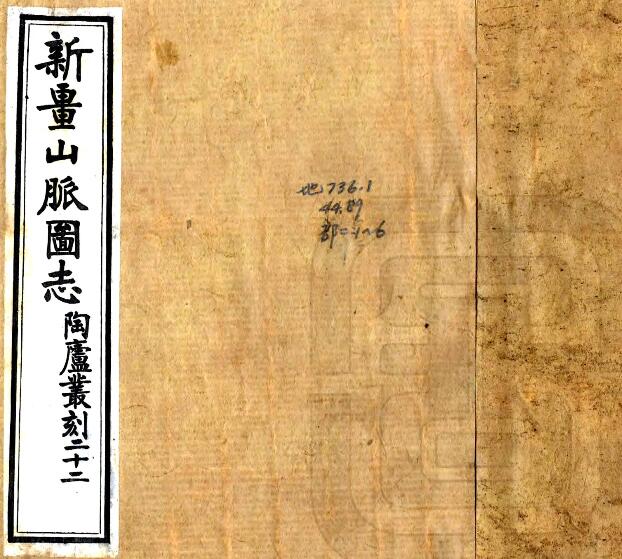 新畺山脈圖志
陶廬叢刻二十二
地736.1
44.89
部二 1~6